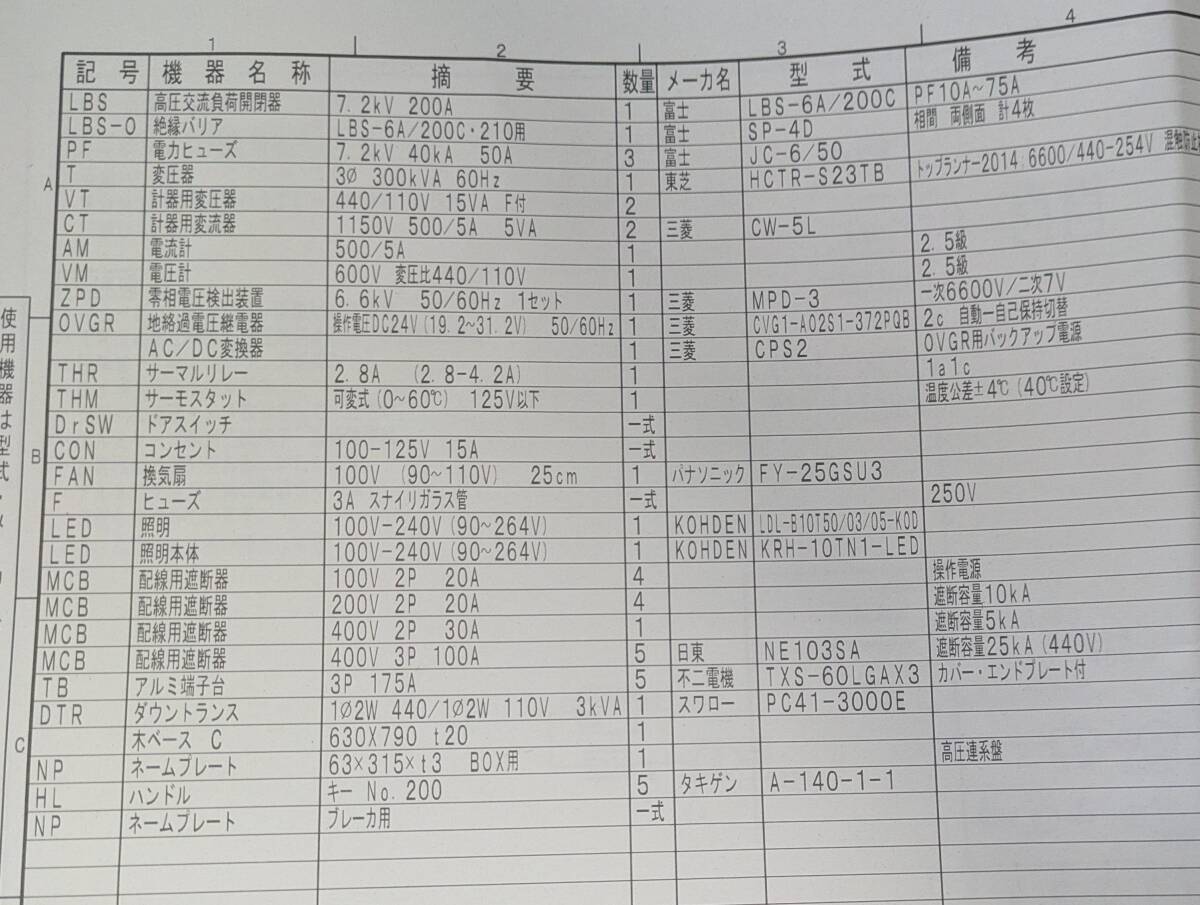 1 2 3 4
記号 機器名称 摘要 数量 メーカ名 型式 備考
LBS 高圧交流負荷開閉器 7.2kV 200A 1 富士 LBS-6A/200C PF10A~75A
LBS-0 絶縁バリア LBS-6A/200C・210用 1 富士 SP-4D 相間 両側面 計4枚
PF 電力ヒューズ 7.2kV 40kA 50A 3 富士 JC-6/50
A
T 変圧器 3Ø 300kVA 60Hz 1 東芝 HCTR-S23TB トップランナー2014 6600/440-254V 混触防止
VT 計器用変圧器 440/110V 15VA F付 2
CT 計器用変流器 1150V 500/5A 5VA 2 三菱 CW-5L
AM 電流計 500/5A 1 2.5級
VM 電圧計 600V 変圧比440/110V 1 2.5級
ZPD 零相電圧検出装置 6.6kV 50/60Hz 1セット 1 三菱 MPD-3 一次6600V/二次7V
OVGR 地絡過電圧継電器 操作電圧DC24V(19.2~31.2V) 50/60Hz 1 三菱 CVG1-A02S1-372PQB 2c 自動ー自己保持切替
AC/DC変換器 1 三菱 CPS2 OVGR用バックアップ電源
THR サーマルリレー 2.8A (2.8-4.2A) 1 1a1c
THM サーモスタット 可変式(0~60℃) 125V以下 1 温度公差±4℃(40℃設定)
DrSW ドアスイッチ 一式
B
CON コンセント 100-125V 15A 一式
FAN 換気扇 100V (90~110V) 25cm 1 パナソニック FY-25GSU3
F ヒューズ 3A スナイリガラス管 一式 250V
LED 照明 100V-240V(90~264V) 1 KOHDEN LDL-B10T50/03/05-K0D
LED 照明本体 100V-240V(90~264V) 1 KOHDEN KRH-10TN1-LED
MCB 配線用遮断器 100V 2P 20A 4 操作電源
MCB 配線用遮断器 200V 2P 20A 4 遮断容量10kA
MCB 配線用遮断器 400V 2P 30A 1 遮断容量5kA
MCB 配線用遮断器 400V 3P 100A 5 日東 NE103SA 遮断容量25kA(440V)
TB アルミ端子台 3P 175A 5 不二電機 TXS-60LGAX3 カバー・エンドプレート付
DTR ダウントランス 1Ø2W 440/1Ø2W 110V 3kVA 1 スワロー PC41-3000E
C
木ベース C 630X790 t20 1
NP ネームプレート 63×315×t3 BOX用 1 高圧連系盤
HL ハンドル キー No.200 5 タキゲン A-140-1-1
NP ネームプレート ブレーカ用 一式
使用機器は型式・